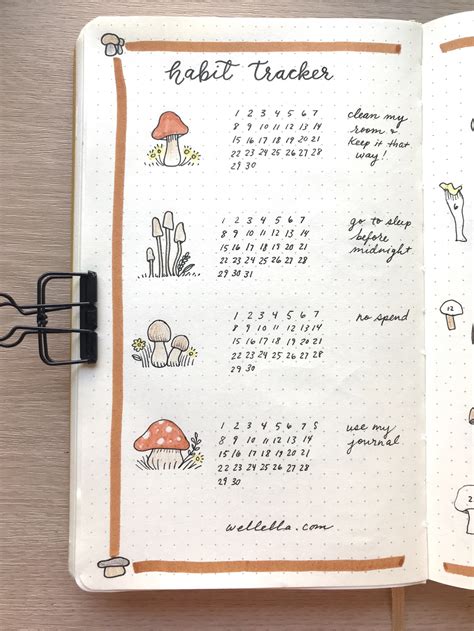 habit Tracker
1 2 3 4 5 6 7
8 9 10 11 12 13 14
15 16 17 18 19 20 21
22 23 24 25 26 27 28
29 30
clean my
room &
keep it that
way!
1 2 3 4 5 6 7
8 9 10 11 12 13 14
15 16 17 18 19 20 21
22 23 24 25 26 27 28
29 30 31
go to sleep
before
midnight
1 2 3 4 5 6 7
8 9 10 11 12 13 14
15 16 17 18 19 20 21
22 23 24 25 26 27 28
29 30
no spend
1 2 3 4 5 6 7
8 9 10 11 12 13 14
15 16 17 18 19 20 21
22 23 24 25 26 27 28
29 30
use my
journal
wellella.com
6
12
23